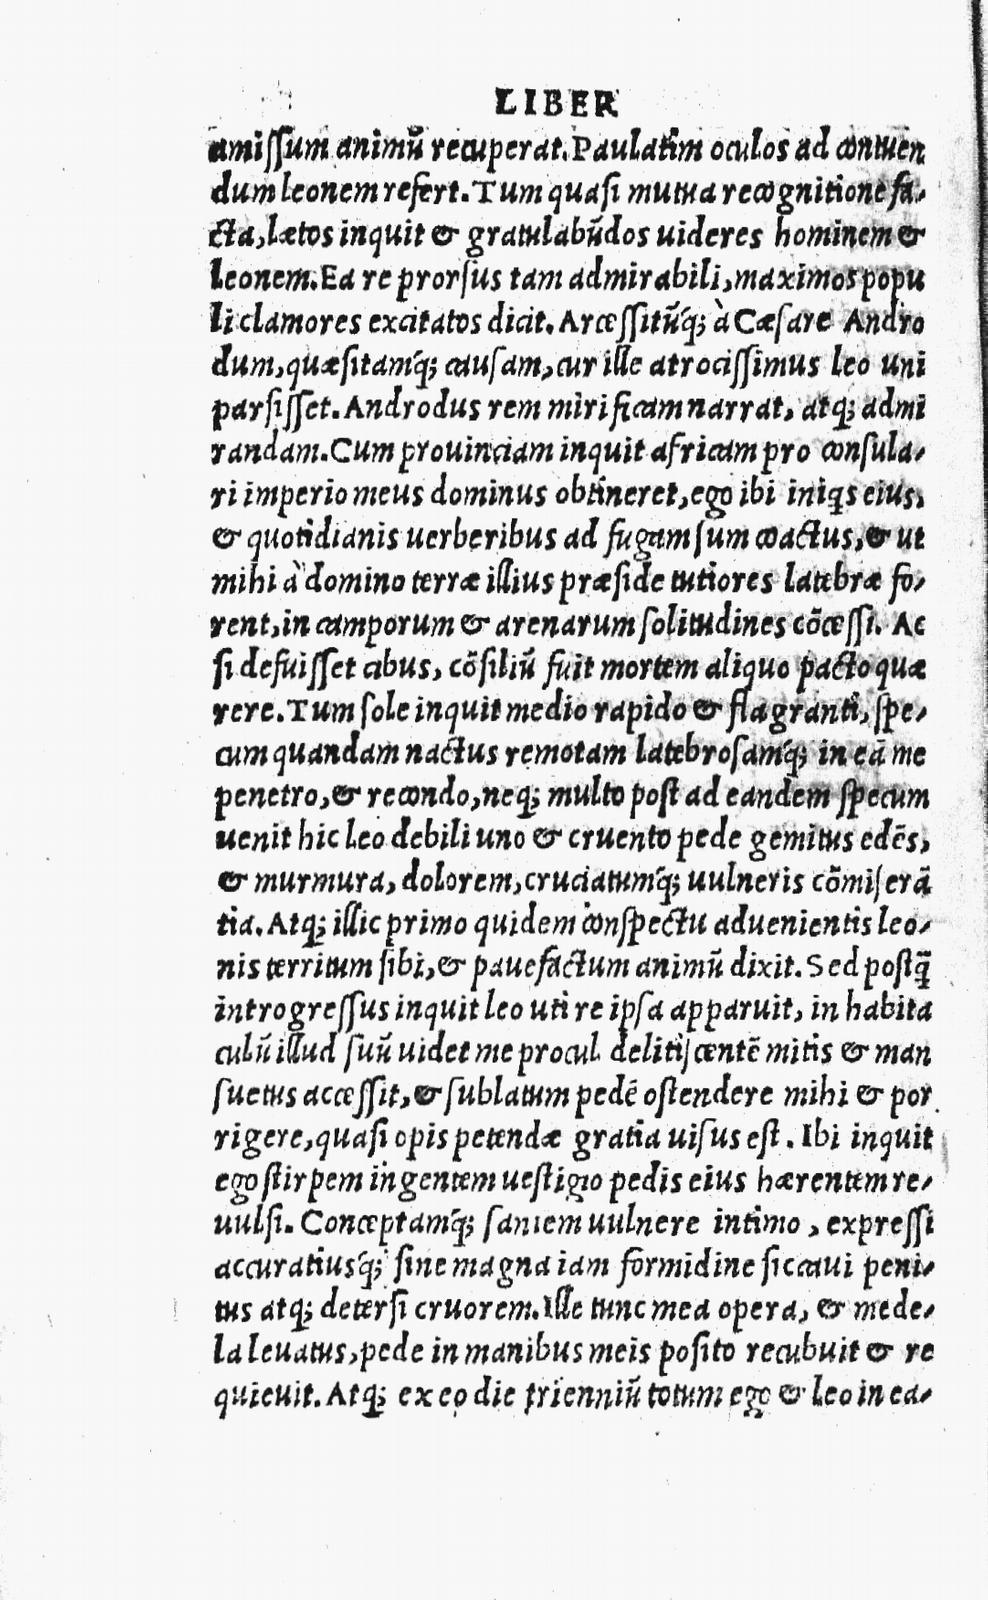 LIBER
amissum animū recuperat. Paulatim oculos ad contuen
dum leonem refert. Tum quasi mutua recognitione fa-
cta, lætos inquit & gratulabūdos uideres hominem &
leonem. Ea re prorsus tam admirabili, maximos popu
li clamores excitatos dicit. Arcessitūq́; à Cæsare Andro
dum, quæsitamq́; causam, cur ille atrocissimus leo uni
parsisset. Androdus rem mirificam narrat, atq; admi
randam. Cum prouinciam inquit africam pro consula-
ri imperio meus dominus obtineret, ego ibi iniqs eius,
& quotidianis uerberibus ad fugam sum coactus, & ut
mihi à domino terræ illius præside tutiores latebræ fo-
rent, in camporum & arenarum solitudines cōcessi. Ac
si defuisset cibus, cōsiliū fuit mortem aliquo pacto quæ
rere. Tum sole inquit medio rapido & flagranti, spe-
cum quandam nactus remotam latebrosamq́; in eā me
penetro, & recondo, neq; multo post ad eandem specum
uenit hic leo debili uno & cruento pede gemitus edēs,
& murmura, dolorem, cruciatumq́; uulneris cōmiserā
tia. Atq; illic primo quidem conspectu aduenientis leo-
nis territum sibi, & pauefactum animū dixit. Sed postq̄
introgressus inquit leo uti re ipsa apparuit, in habita
culū illud suū uidet me procul delitiscentē mitis & man
suetus accessit, & sublatum pedē ostendere mihi & por
rigere, quasi opis petendæ gratia uisus est. Ibi inquit
ego stirpem ingentem uestigio pedis eius hærentem re-
uulsi. Conceptamq́; saniem uulnere intimo, expressi
accuratiusq́; sine magna iam formidine siccaui peni-
tus atq; detersi cruorem. Ille tunc mea opera, & mede-
la leuatus, pede in manibus meis posito recubuit & re
quieuit. Atq; ex eo die trienniū totum ego & leo in ea-